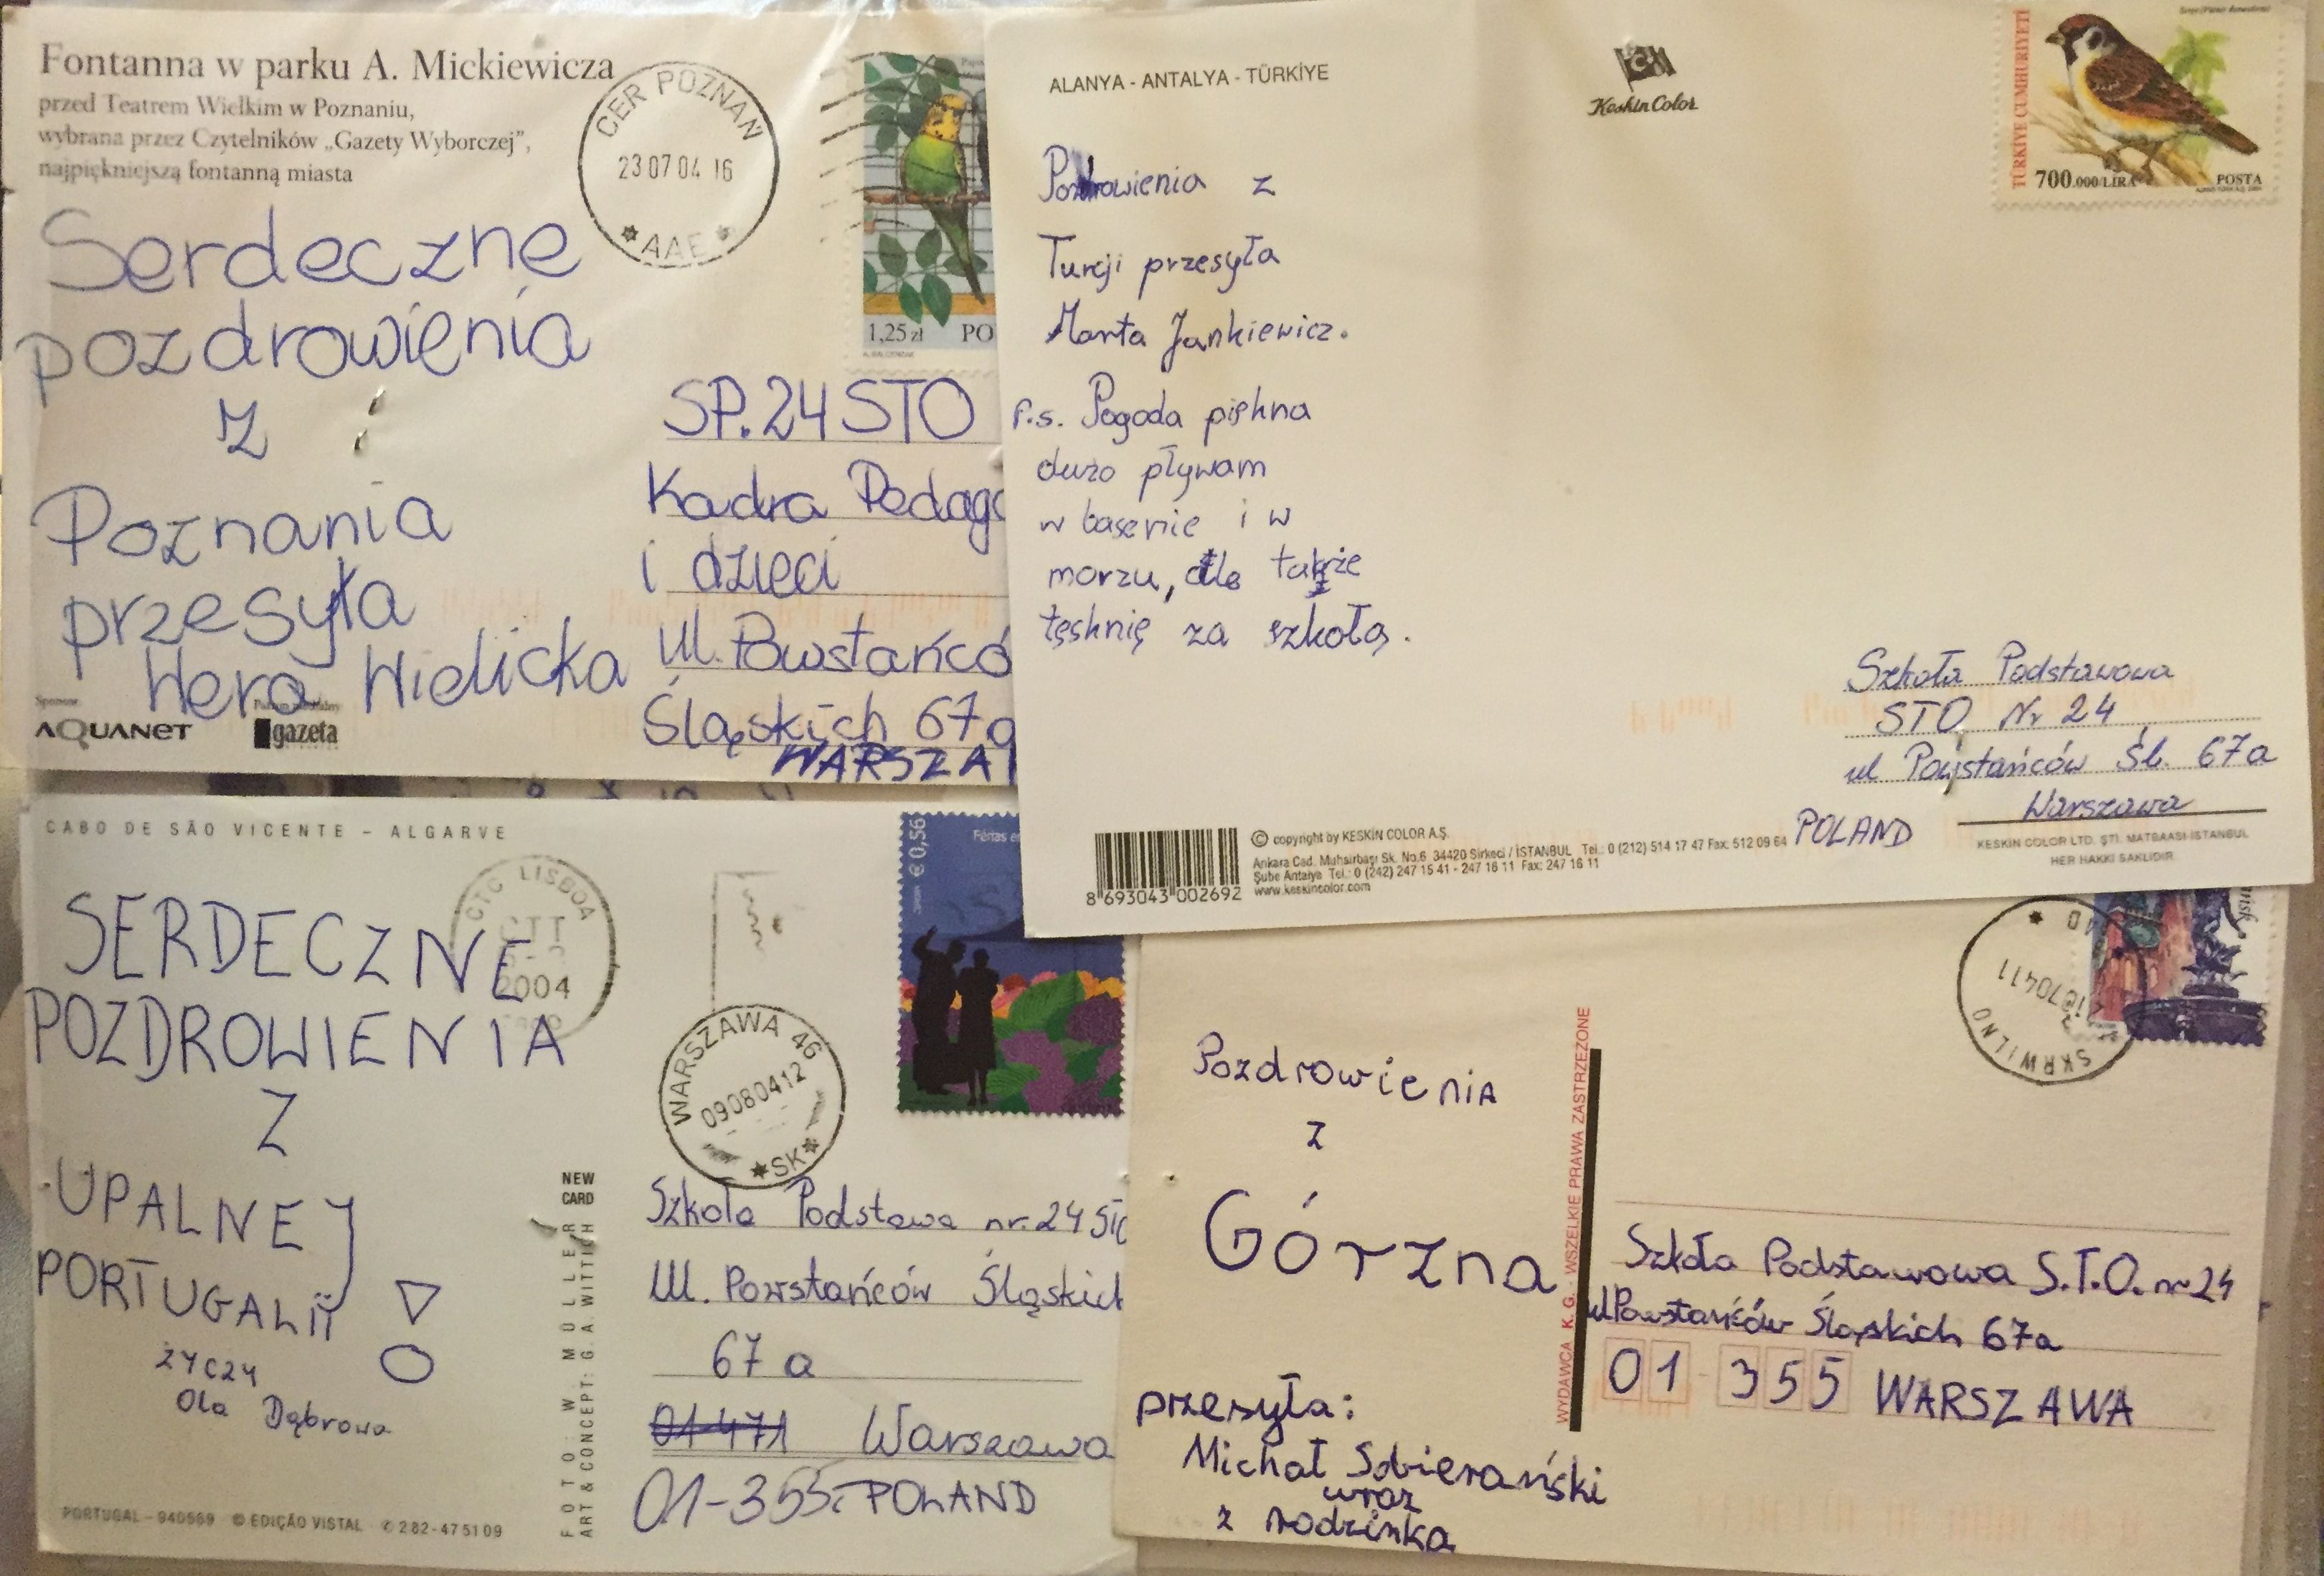 Fontanna w parku A. Mickiewicza
przed Teatrem Wielkim w Poznaniu,
wybrana przez Czytelników „Gazety Wyborczej”,
najpiękniejszą fontanną miasta
CER POZNAŃ
23 07 04 16
* AAE *
1,25 zł PO
Serdeczne
pozdrowienia
z
Poznania
przesyła
Wera Wielicka
Sponsor
AQUANET
gazeta
SP.24 STO
Kadra Pedago
i dzieci
ul. Powstańcó
Śląskich 67a
WARSZA
ALANYA - ANTALYA - TÜRKİYE
Keskin Color
TÜRKİYE CUMHURİYETİ
700.000/LİRA POSTA
Pozdrowienia z
Turcji przesyła
Marta Jankiewicz.
P.s. Pogoda piękna
dużo pływam
w basenie i w
morzu, ale także
tęsknię za szkołą.
Szkoła Podstawowa
STO Nr 24
ul Powstańców Śl. 67a
Warszawa
POLAND
8 693043 002692
© copyright by KESKİN COLOR A.Ş.
Ankara Cad. Muhsirbaşı Sk. No.6 34420 Sirkeci / İSTANBUL Tel.: 0 (212) 514 17 47 Fax: 512 09 64
Şube Antalya Tel.: 0 (242) 247 15 41 - 247 16 11 Fax: 247 16 11
www.keskincolor.com
KESKİN COLOR LTD. ŞTİ. MATBAASI-İSTANBUL
HER HAKKI SAKLIDIR
CABO DE SÃO VICENTE - ALGARVE
CTC LISBOA
CTT
2004
€ 0,56
Férias
WARSZAWA 46
09080412
*SK*
SERDECZNE
POZDROWIENIA
Z
UPALNEJ
PORTUGALII
ŻYCZY
Ola Dąbrowa
NEW
CARD
FOTO: W. MÖLLER
ART & CONCEPT: G.A. WITTICH
PORTUGAL - 940569 © EDIÇÃO VISTAL ✆ 282-475109
Szkoła Podstawa nr. 24 STO
Ul. Powstańców Śląskich
67 a
01-471 Warszawa
01-355 POLAND
SKRWILNO
Pozdrowienia
z
Górzna
przesyła:
Michał Sobierański
wraz
z rodzinka
WYDAWCA K.G. - WSZELKIE PRAWA ZASTRZEŻONE
Szkoła Podstawowa S.T.O. nr 24
ul Powstańców Śląskich 67a
01 355 WARSZAWA